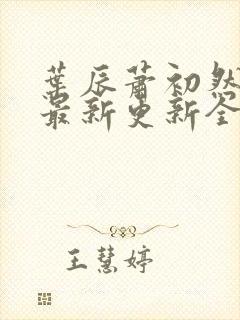 葉辰蕭初然
最新更新全
王慧婷